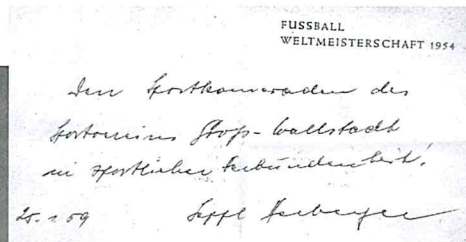 FUSSBALL
WELTMEISTERSCHAFT 1954
Den Sportkameraden des
Sportvereins Groß-Wallstadt
in sportlicher Verbundenheit!
25.1.59 Seppl Herberger